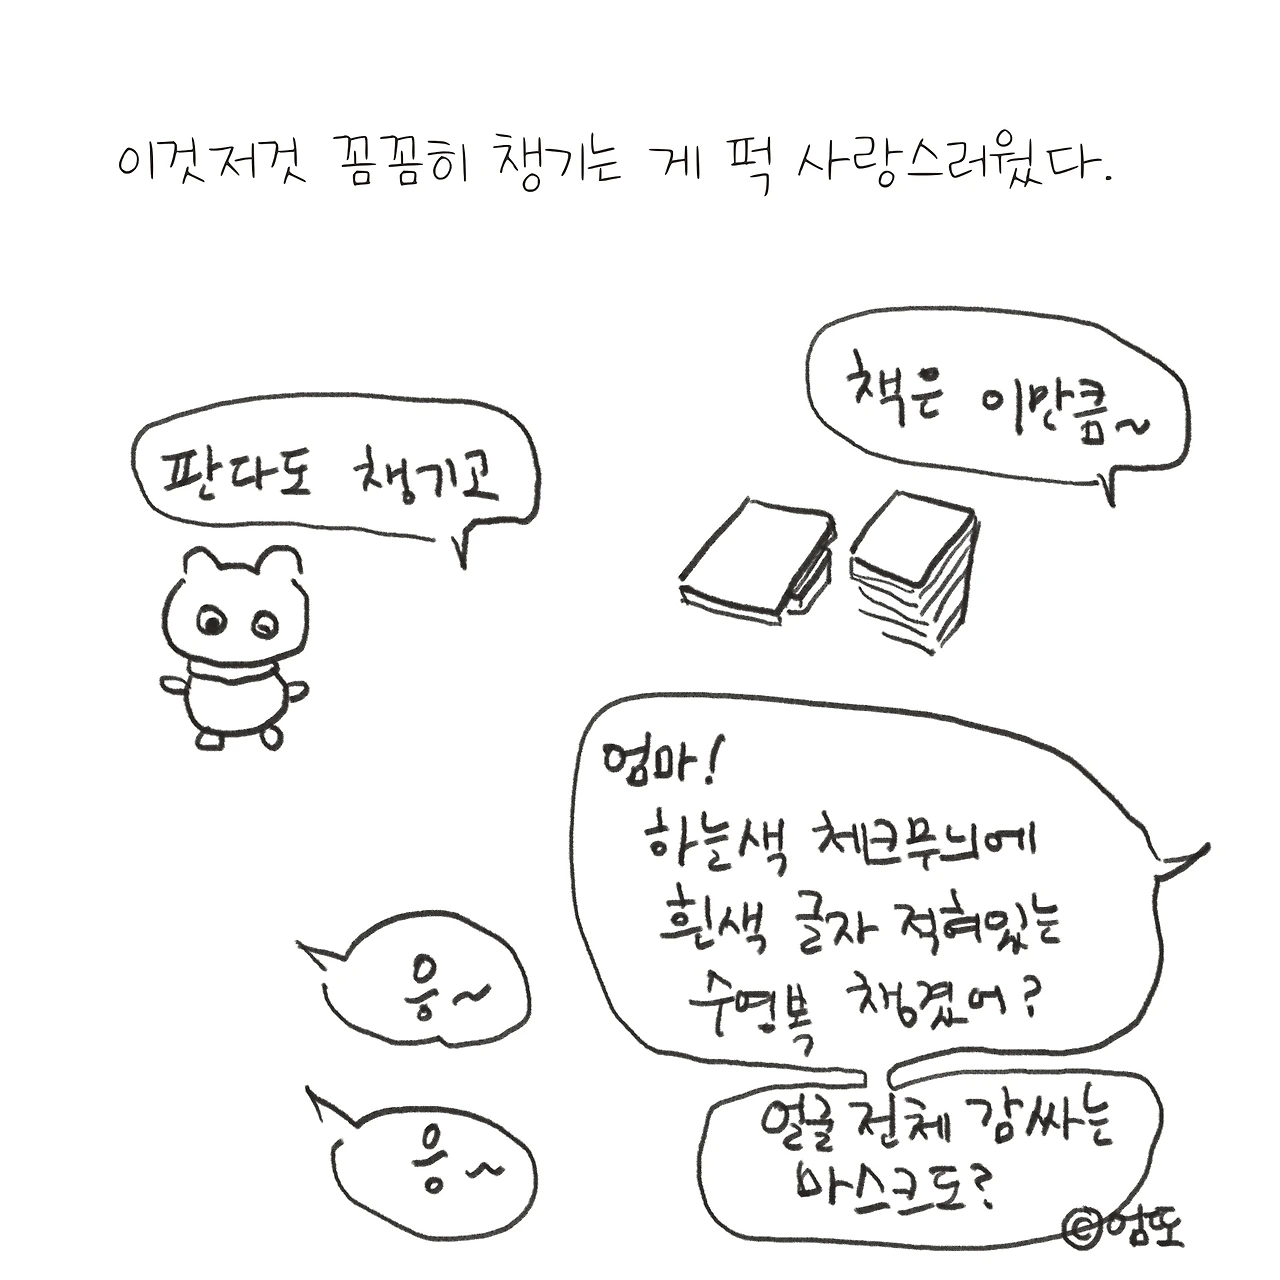 이것저것 꼼꼼히 챙기는 게 퍽 사랑스러웠다.
책은 이만큼~
판다도 챙기고
엄마!
하늘색 체크무늬에
흰색 글자 적혀있는
수면복 챙겼어?
응~
얼굴 전체 감싸는
마스크도?
응~
©엄또